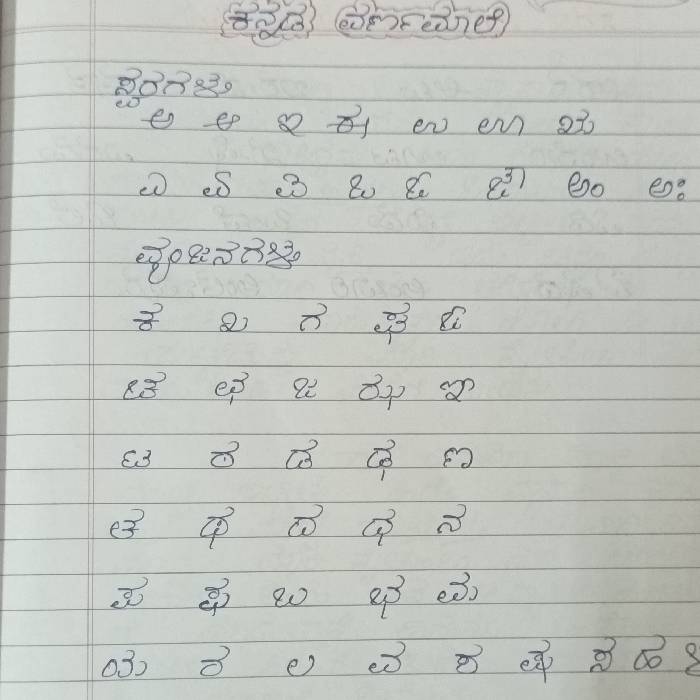 ಕನ್ನಡ ವರ್ಣಮಾಲೆ
ಸ್ವರಗಳು
ಅ ಆ ಇ ಈ ಉ ಊ ಋ
ಎ ಏ ಐ ಒ ಓ ಔ ಅಂ ಅಃ
ವ್ಯಂಜನಗಳು
ಕ ಖ ಗ ಘ ಙ
ಚ ಛ ಜ ಝ ಞ
ಟ ಠ ಡ ಢ ಣ
ತ ಥ ದ ಧ ನ
ಪ ಫ ಬ ಭ ಮ
ಯ ರ ಲ ವ ಶ ಷ ಸ ಹ ಳ